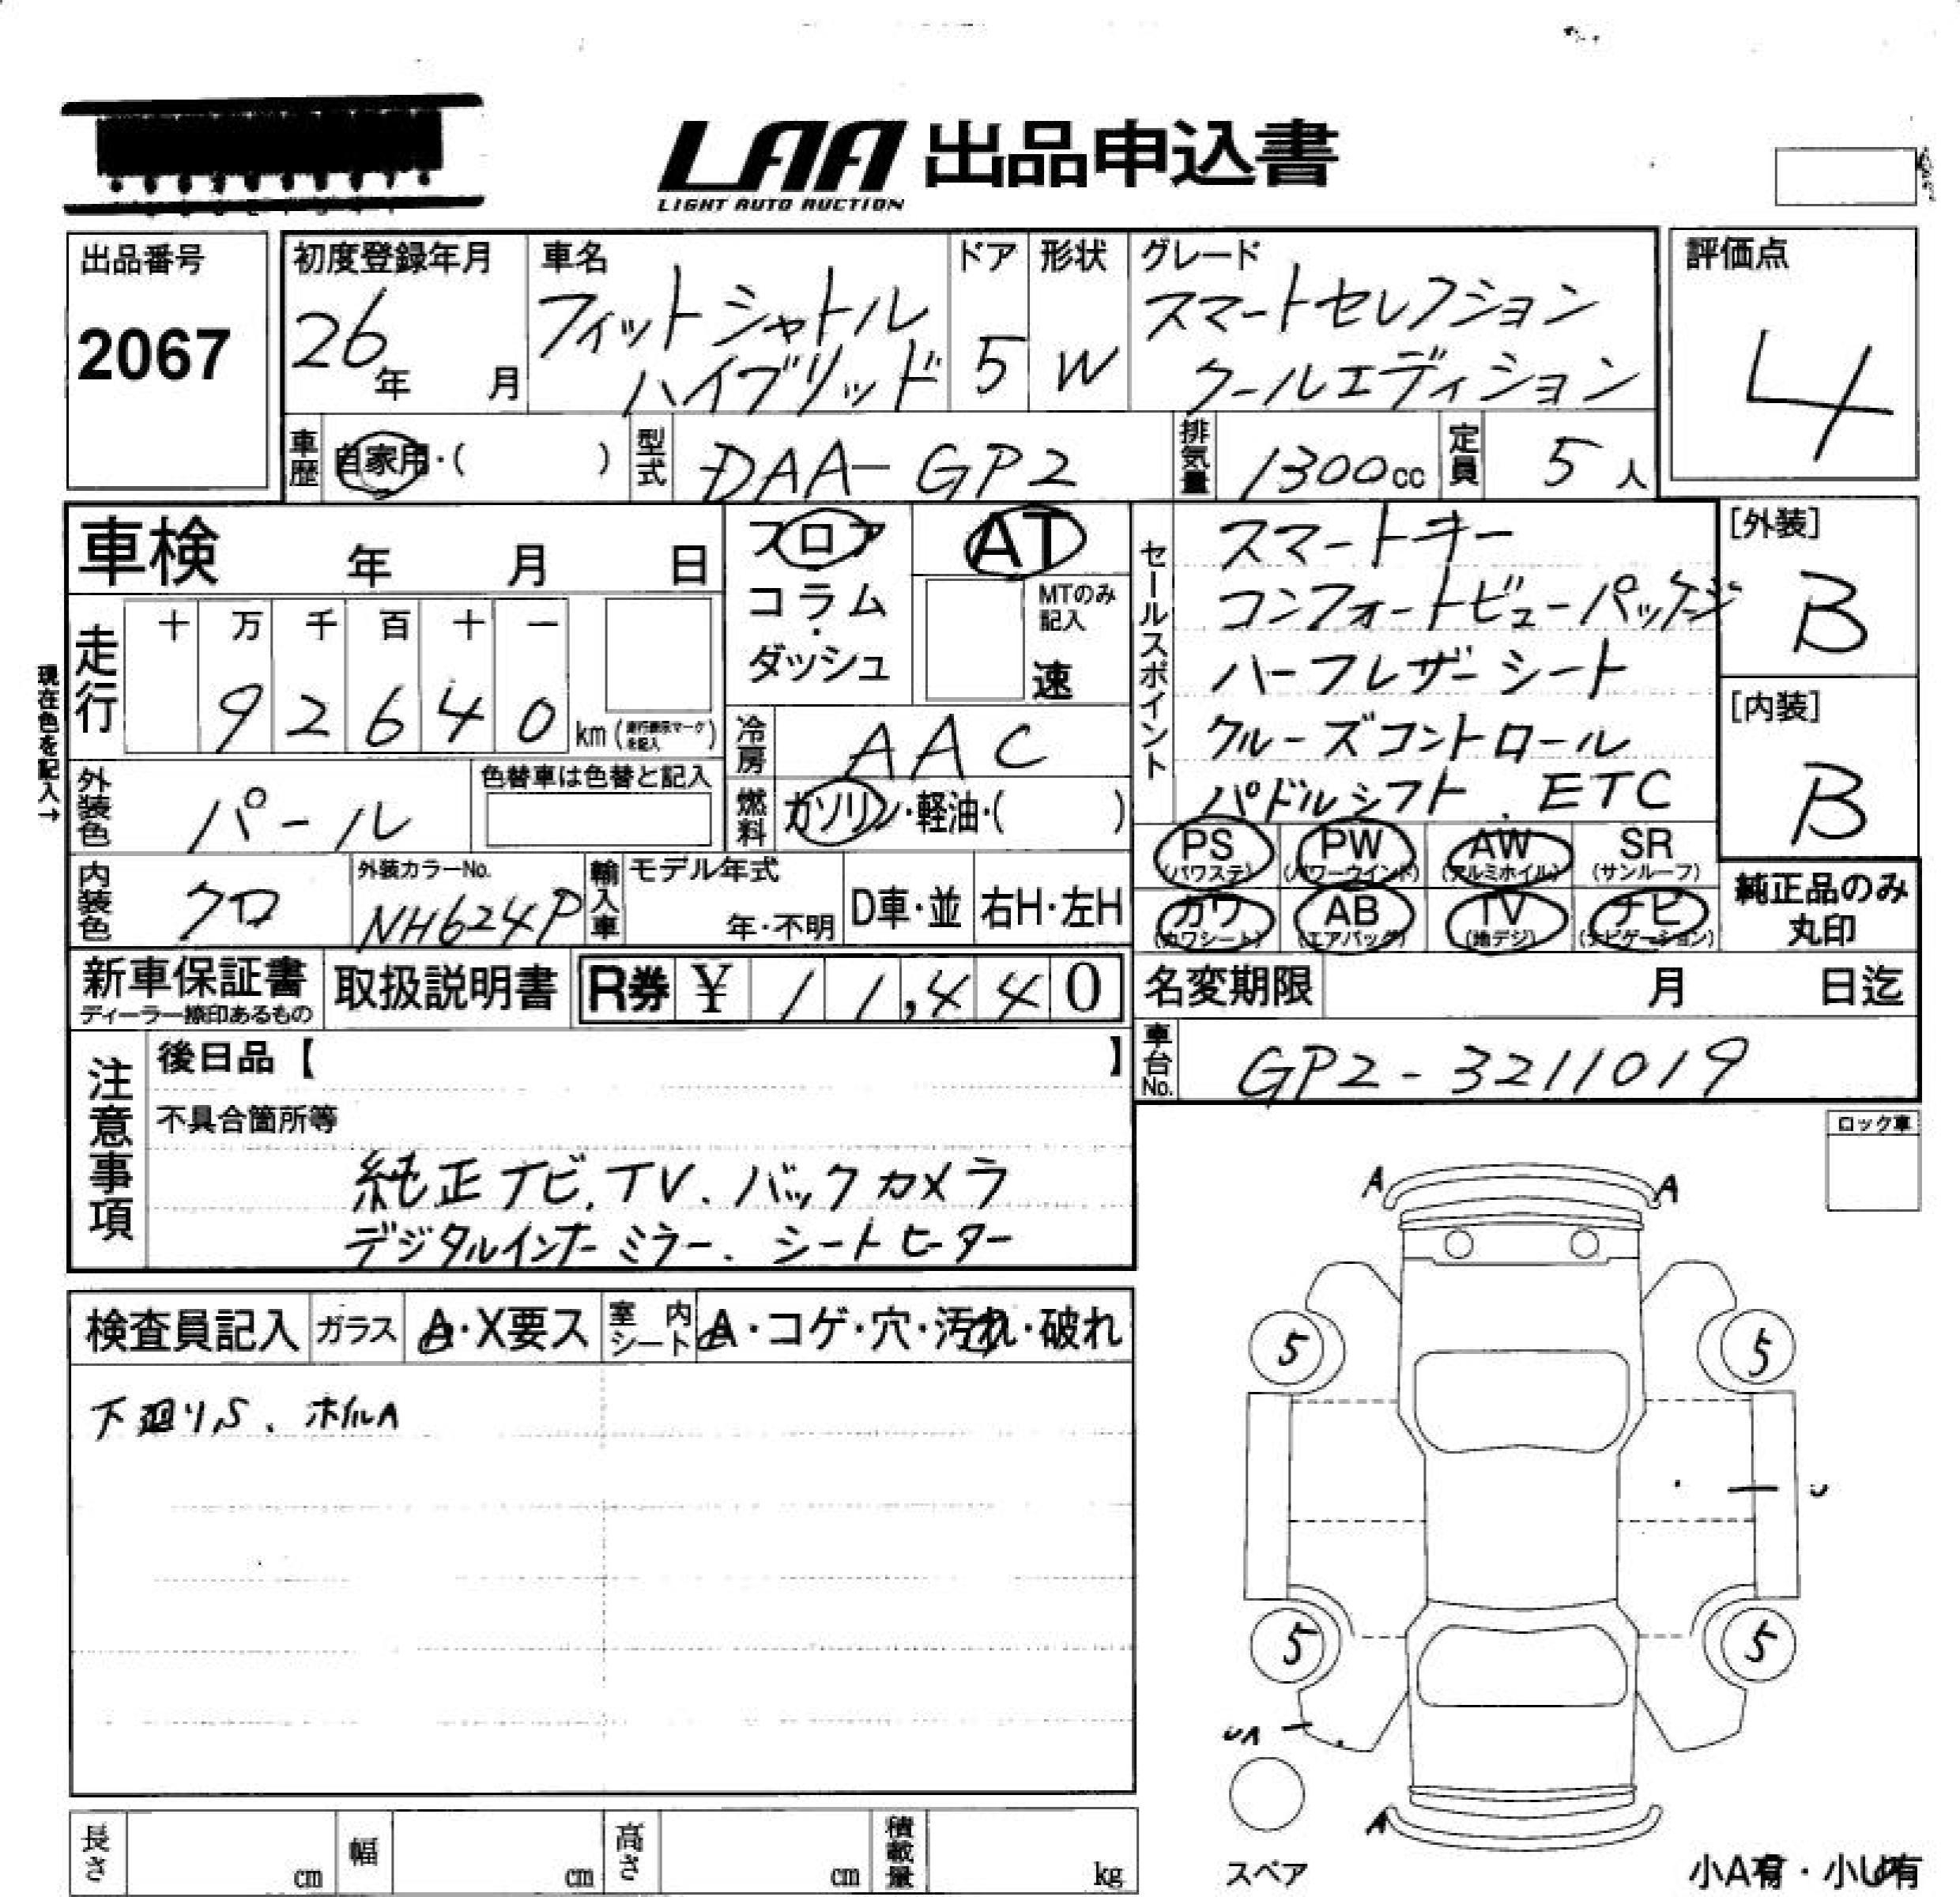 LAA 出品申込書
LIGHT AUTO AUCTION
出品番号
2067
初度登録年月
26年 月
車名
フィットシャトル
ハイブリッド
ドア
5
形状
W
グレード
スマートセレクション
クールエディション
評価点
4
車歴 自家用・( )
型式 DAA-GP2
排気量 1300cc
定員 5人
車検 年 月 日
フロア
コラム
・
ダッシュ
AT
MTのみ
記入
速
セールスポイント
スマートキー
コンフォートビューパッケージ
ハーフレザーシート
クルーズコントロール
パドルシフト、ETC
[外装]
B
[内装]
B
現在色を記入→
走行
十 万 千 百 十 一
9 2 6 4 0 km
冷房 AAC
外装色 パール
色替車は色替と記入
燃料 ガソリン・軽油・( )
PS
(パワステ)
PW
(パワーウインド)
AW
(アルミホイル)
SR
(サンルーフ)
カワ
(カワシート)
AB
(エアバッグ)
TV
(地デジ)
ナビ
(ナビゲーション)
純正品のみ
丸印
内装色 クロ
外装カラーNo.
NH624P
輸入車
モデル年式
年・不明
D車・並
右H・左H
新車保証書
取扱説明書
R券 ¥ 11,440
名変期限 月 日迄
車台No. GP2-3211019
注意事項
後日品【 】
不具合箇所等
純正ナビ、TV、バックカメラ
デジタルインナーミラー、シートヒーター
ロック車
検査員記入
ガラス A・X要ス
室内シート A・コゲ・穴・汚れ・破れ
下廻りS、ホイルA
A
A
5
5
U
5
5
UA
A
スペア
小A有・小U有
長さ cm
幅 cm
高さ cm
積載量 kg